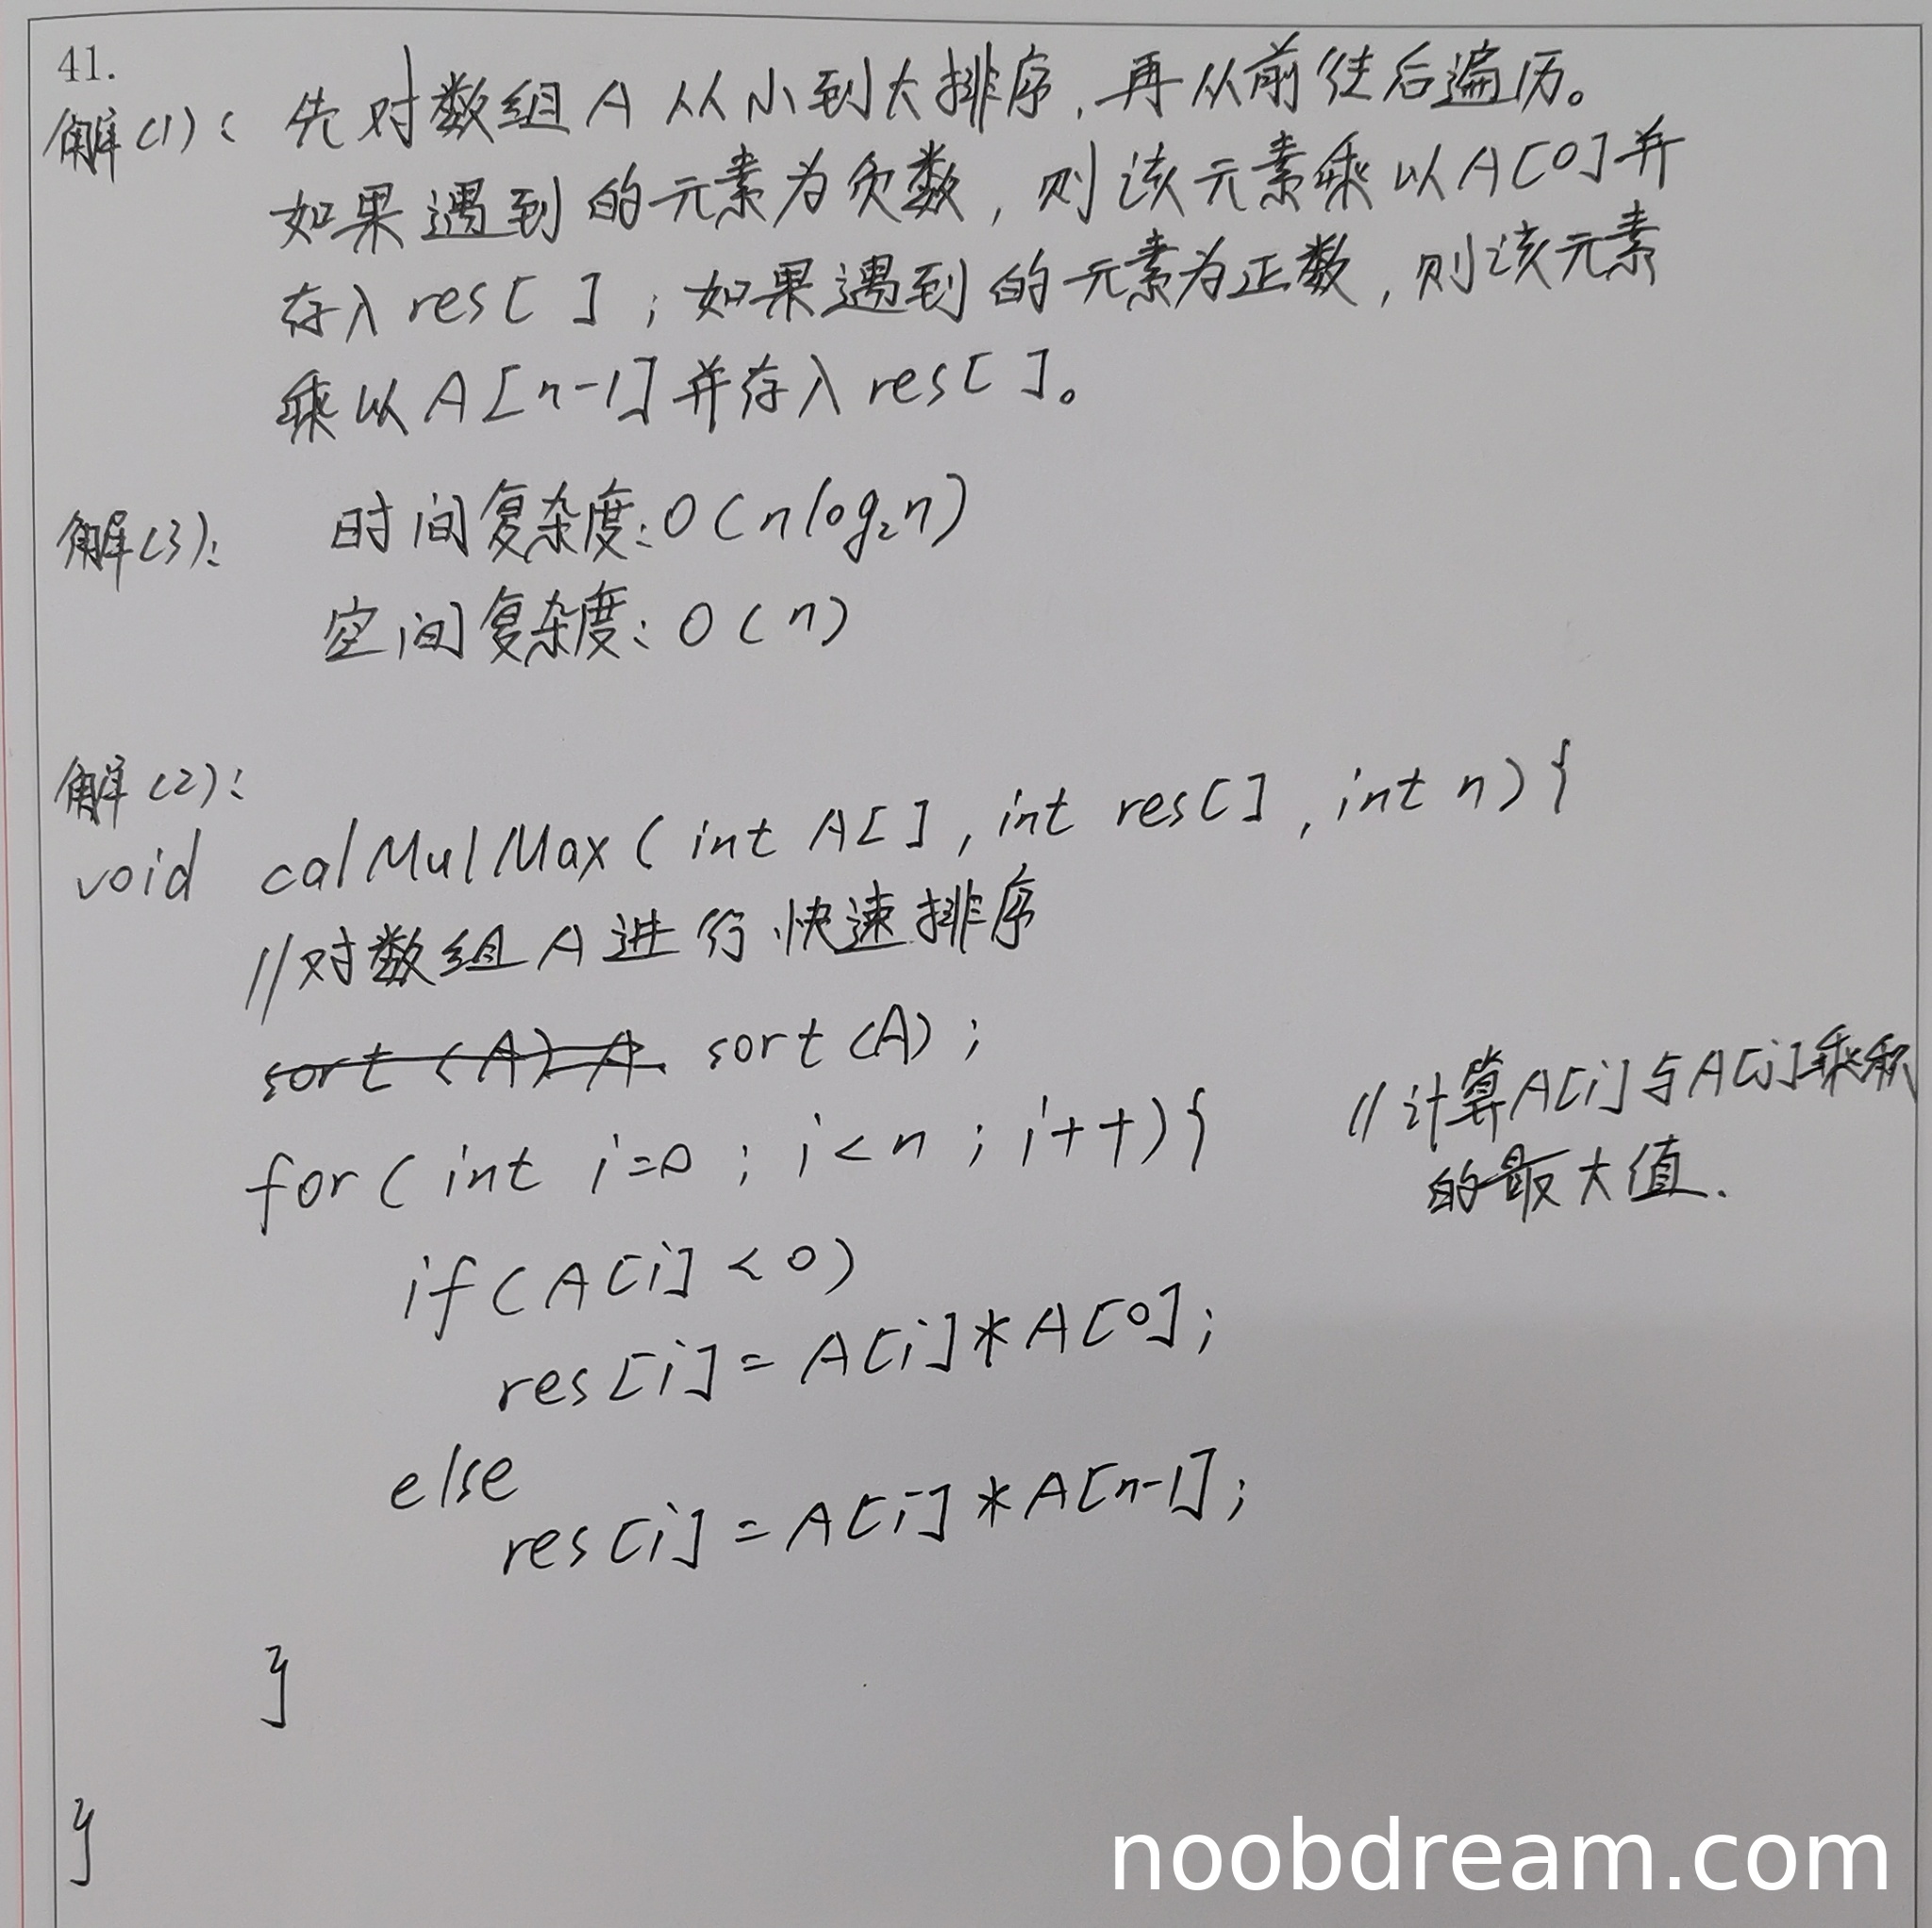 41.
解(1): 先对数组A从小到大排序,再从前往后遍历。
如果遇到的元素为负数,则该元素乘以A[0]并
存入res[ ];如果遇到的元素为正数,则该元素
乘以A[n-1]并存入res[ ]。
解(3): 时间复杂度:O(nlog₂n)
空间复杂度:O(n)
解(2):
void calMulMax(int A[], int res[], int n){
//对数组A进行快速排序
sort(A) A sort(A);
for(int i=0; i<n; i++){ //计算A[i]与A[j]乘积
的最大值.
if(A[i]<0)
res[i]=A[i]*A[0];
else
res[i]=A[i]*A[n-1];
}
}
noobdream.com